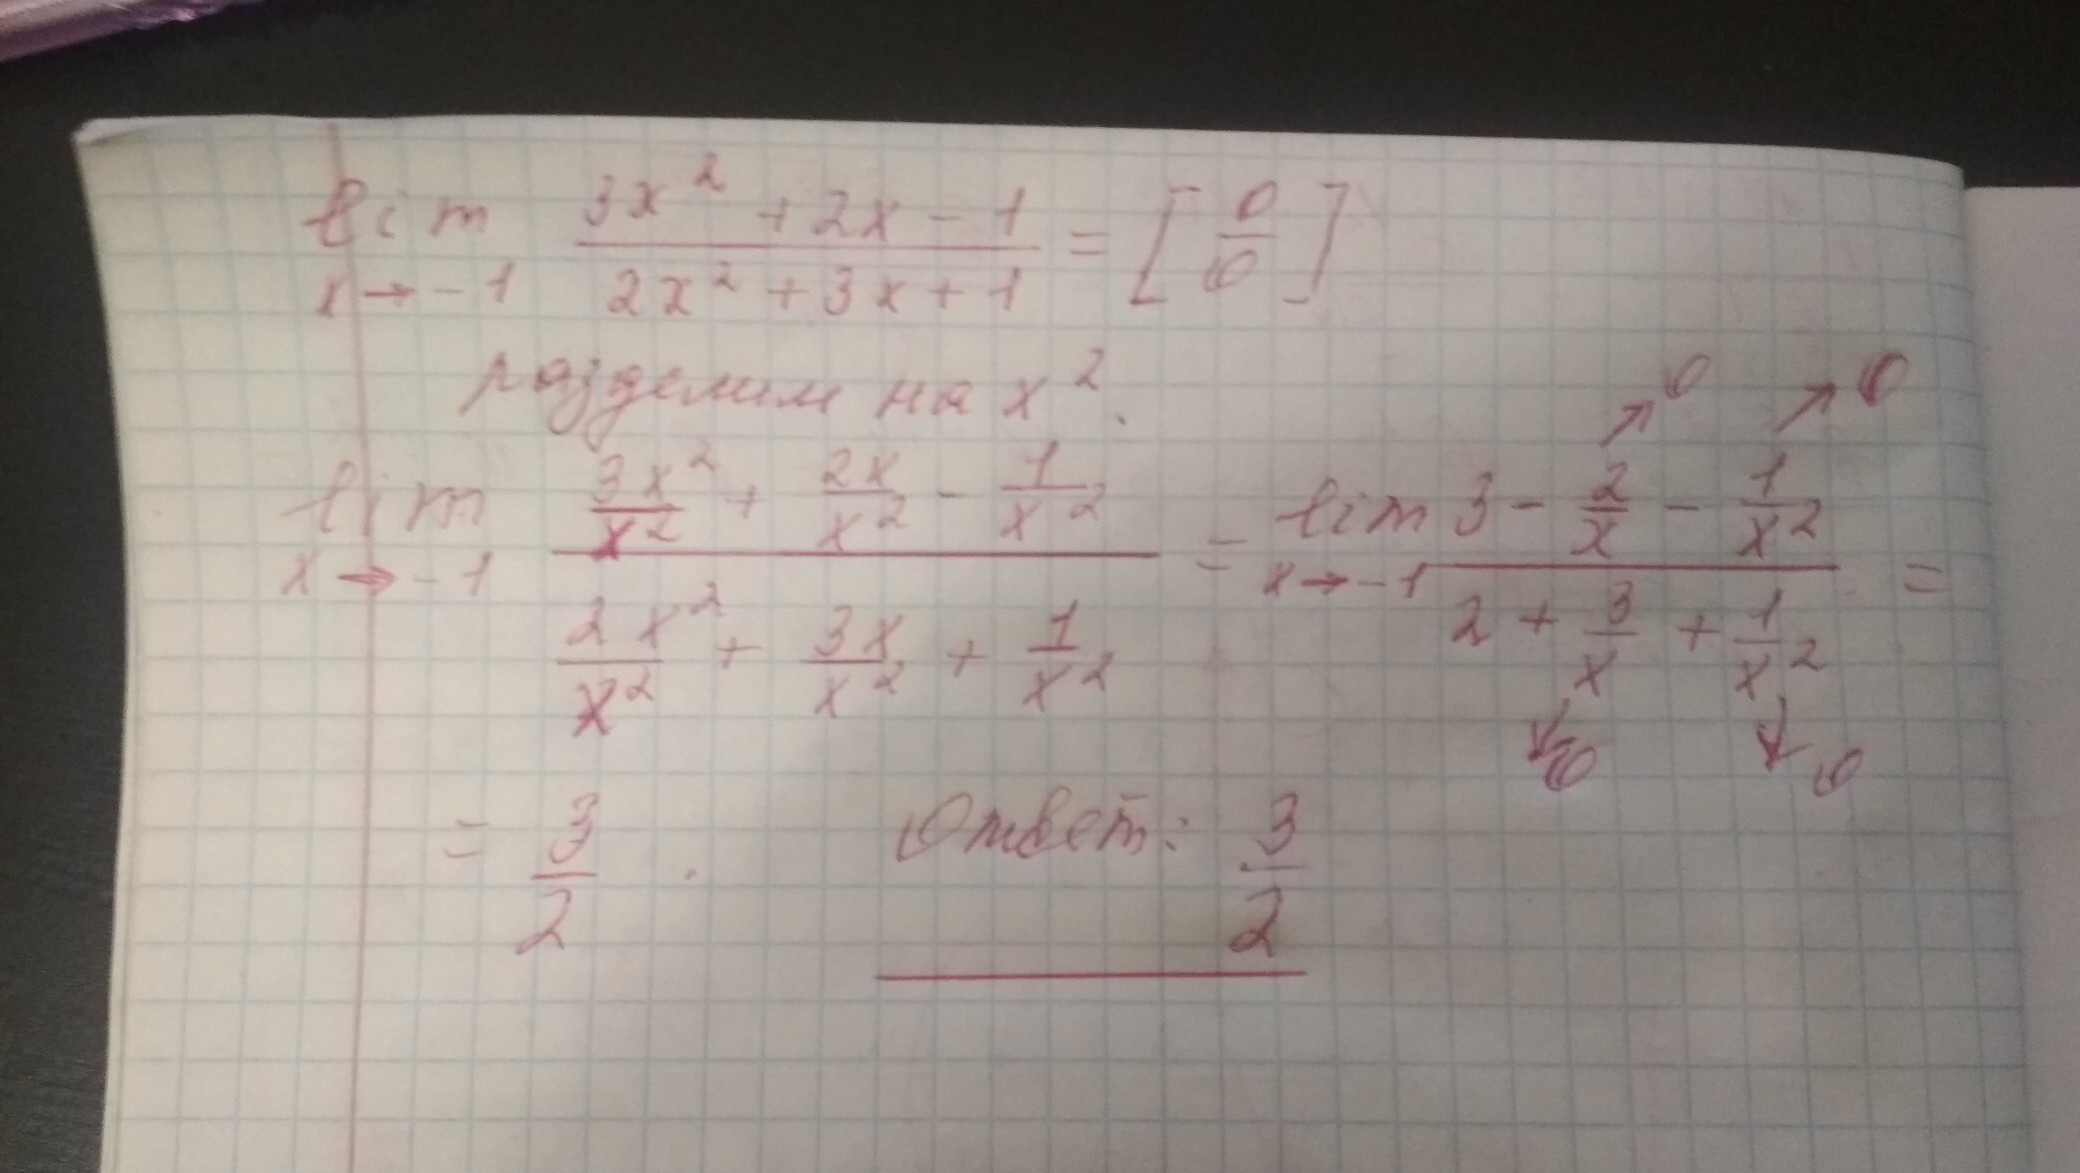 lim 3x² + 2x - 1 / 2x² + 3x + 1 = [0/0]
x → -1
разделим на x².
lim (3x²/x² + 2x/x² - 1/x²) / (2x²/x² + 3x/x² + 1/x²) = lim (3 - 2/x - 1/x²) / (2 + 3/x + 1/x²) =
x → -1 x → -1
↗0 ↗0
↙0 ↓0
= 3/2 . Ответ: 3/2